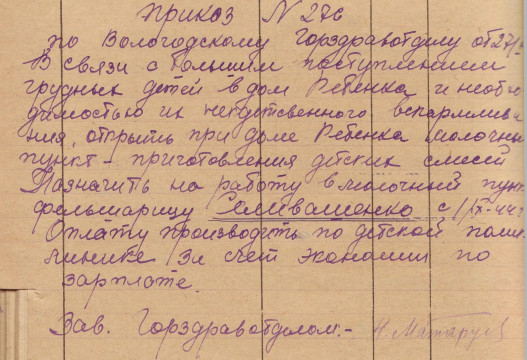 приказ N 276
по Вологодскому Горздравотделу от 27/
В связи с большим поступлением
грудных детей в дом Ребенка и необхо
димостью их исскуственного вскармлива
ния, открыть при доме Ребенка молочный
пункт - приготовления детских смесей
Назначить на работу в молочный пунк
фельшарицу Селивашенко с 1/IX-44г
Оплату производить по детской поли
клинике за счет экономии по
зарплате.
Зав. Горздравотделом. -